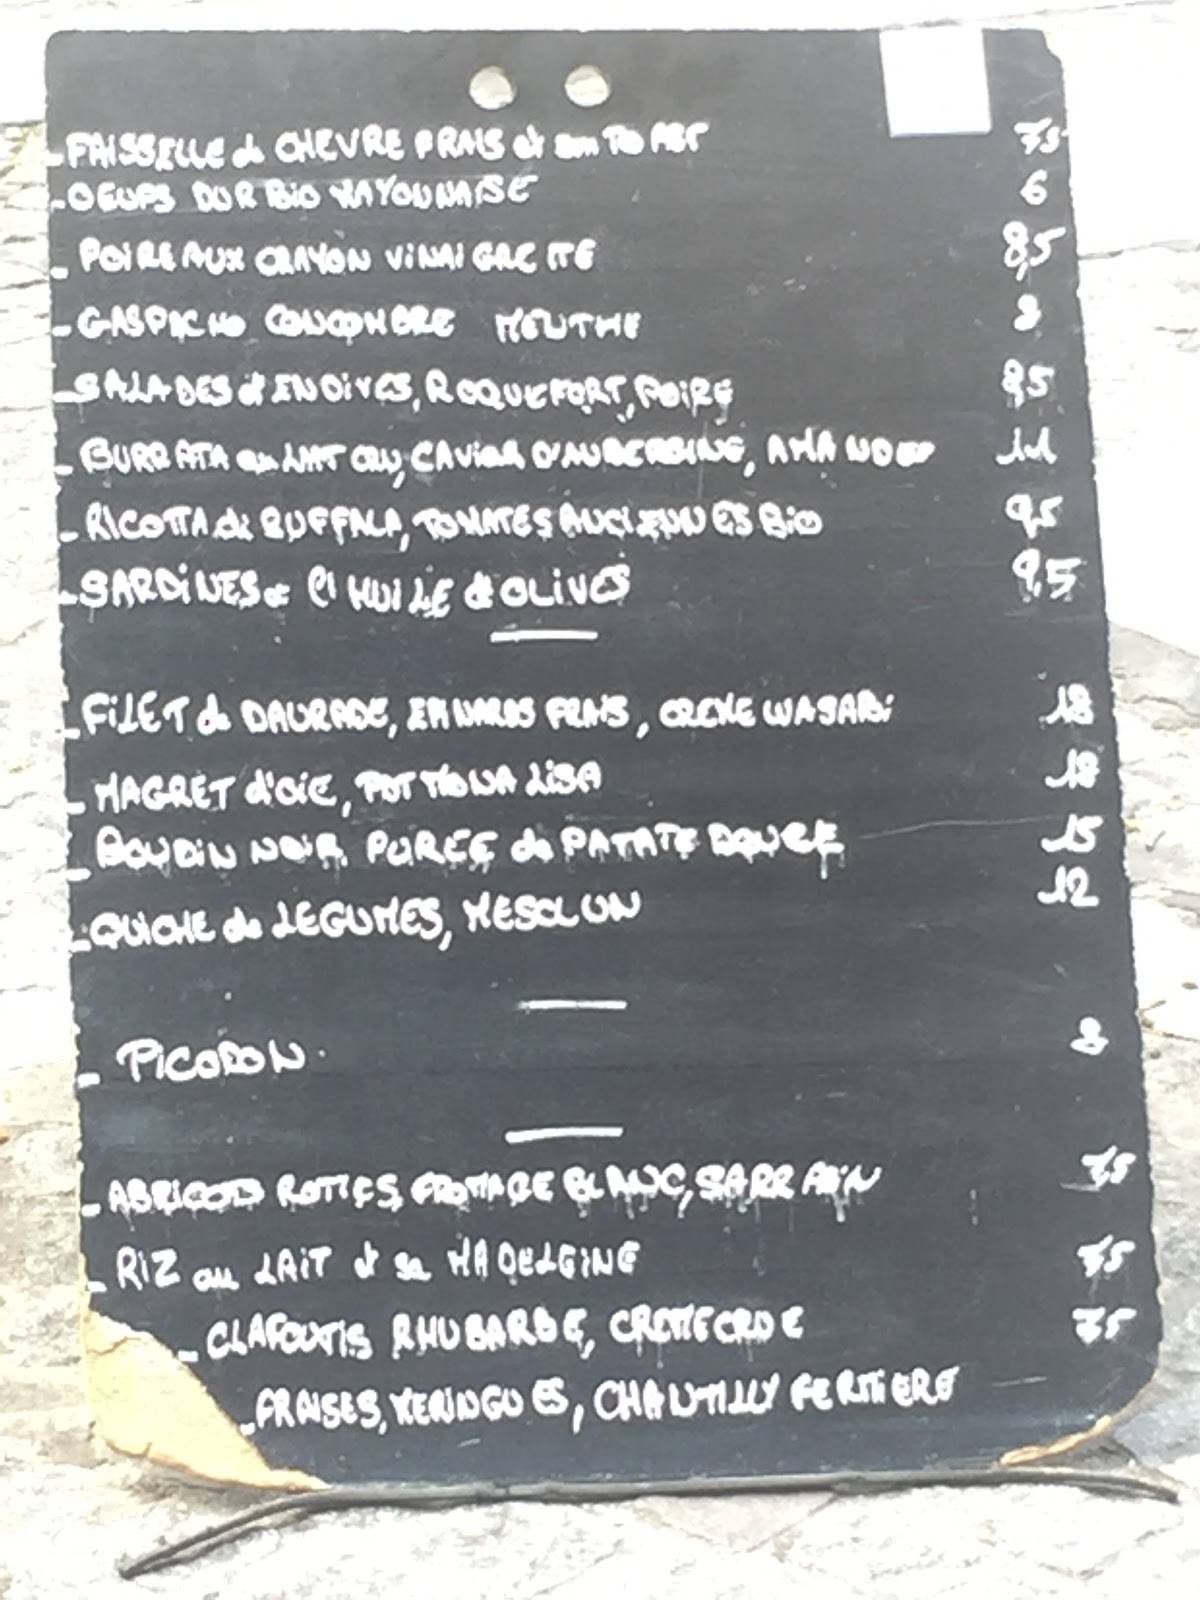 - FAISSELLE de CHEVRE FRAIS et son TOAST 7,5
- OEUFS DUR BiO MAYONNAISE 6
- POIREAUX CRAYON ViNAiGRETTE 8,5
- GASPACHO CONCOMBRE MENTHE 8
- SALADES d'ENDIVES, ROQUEFORT, POIRE 8,5
- BURRATA au LAIT CRU, CAViAR D'AUBERGINE, AMANDES 11
- RICOTTA di BUFFALA, TOMATES ANCIENNES BiO 9,5
- SARDiNES à l'HUiLE d'OLiVES 9,5
- FiLET de DAURADE, EPINARDS FRAIS, CREME WASABi 18
- MAGRET d'OiE, POT MONA LiSA 18
- BOUDiN NOIR, PUREE de PATATE DOUCE 15
- QUICHE de LEGUMES, MESCLUN 12
- PICODON. 8
- ABRICOTS ROTIES, FROMAGE BLANC, SARRASiN 7,5
- RIZ au LAiT et sa MADELEiNE 7,5
- CLAFOUTIS RHUBARBE, CREME CRUE 7,5
- FRAISES, MERINGUES, CHANTILLY FERMIERE